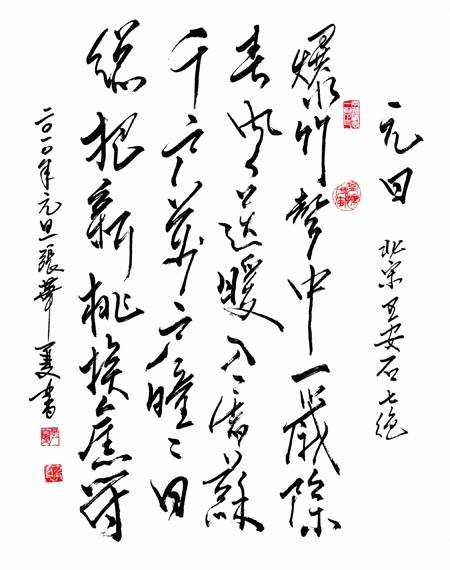 元日 北宋王安石七绝
爆竹聲中一歲除
春風送暖入屠蘇
千门萬户曈曈日
總把新桃换舊符
二〇一〇年元旦張華夏書